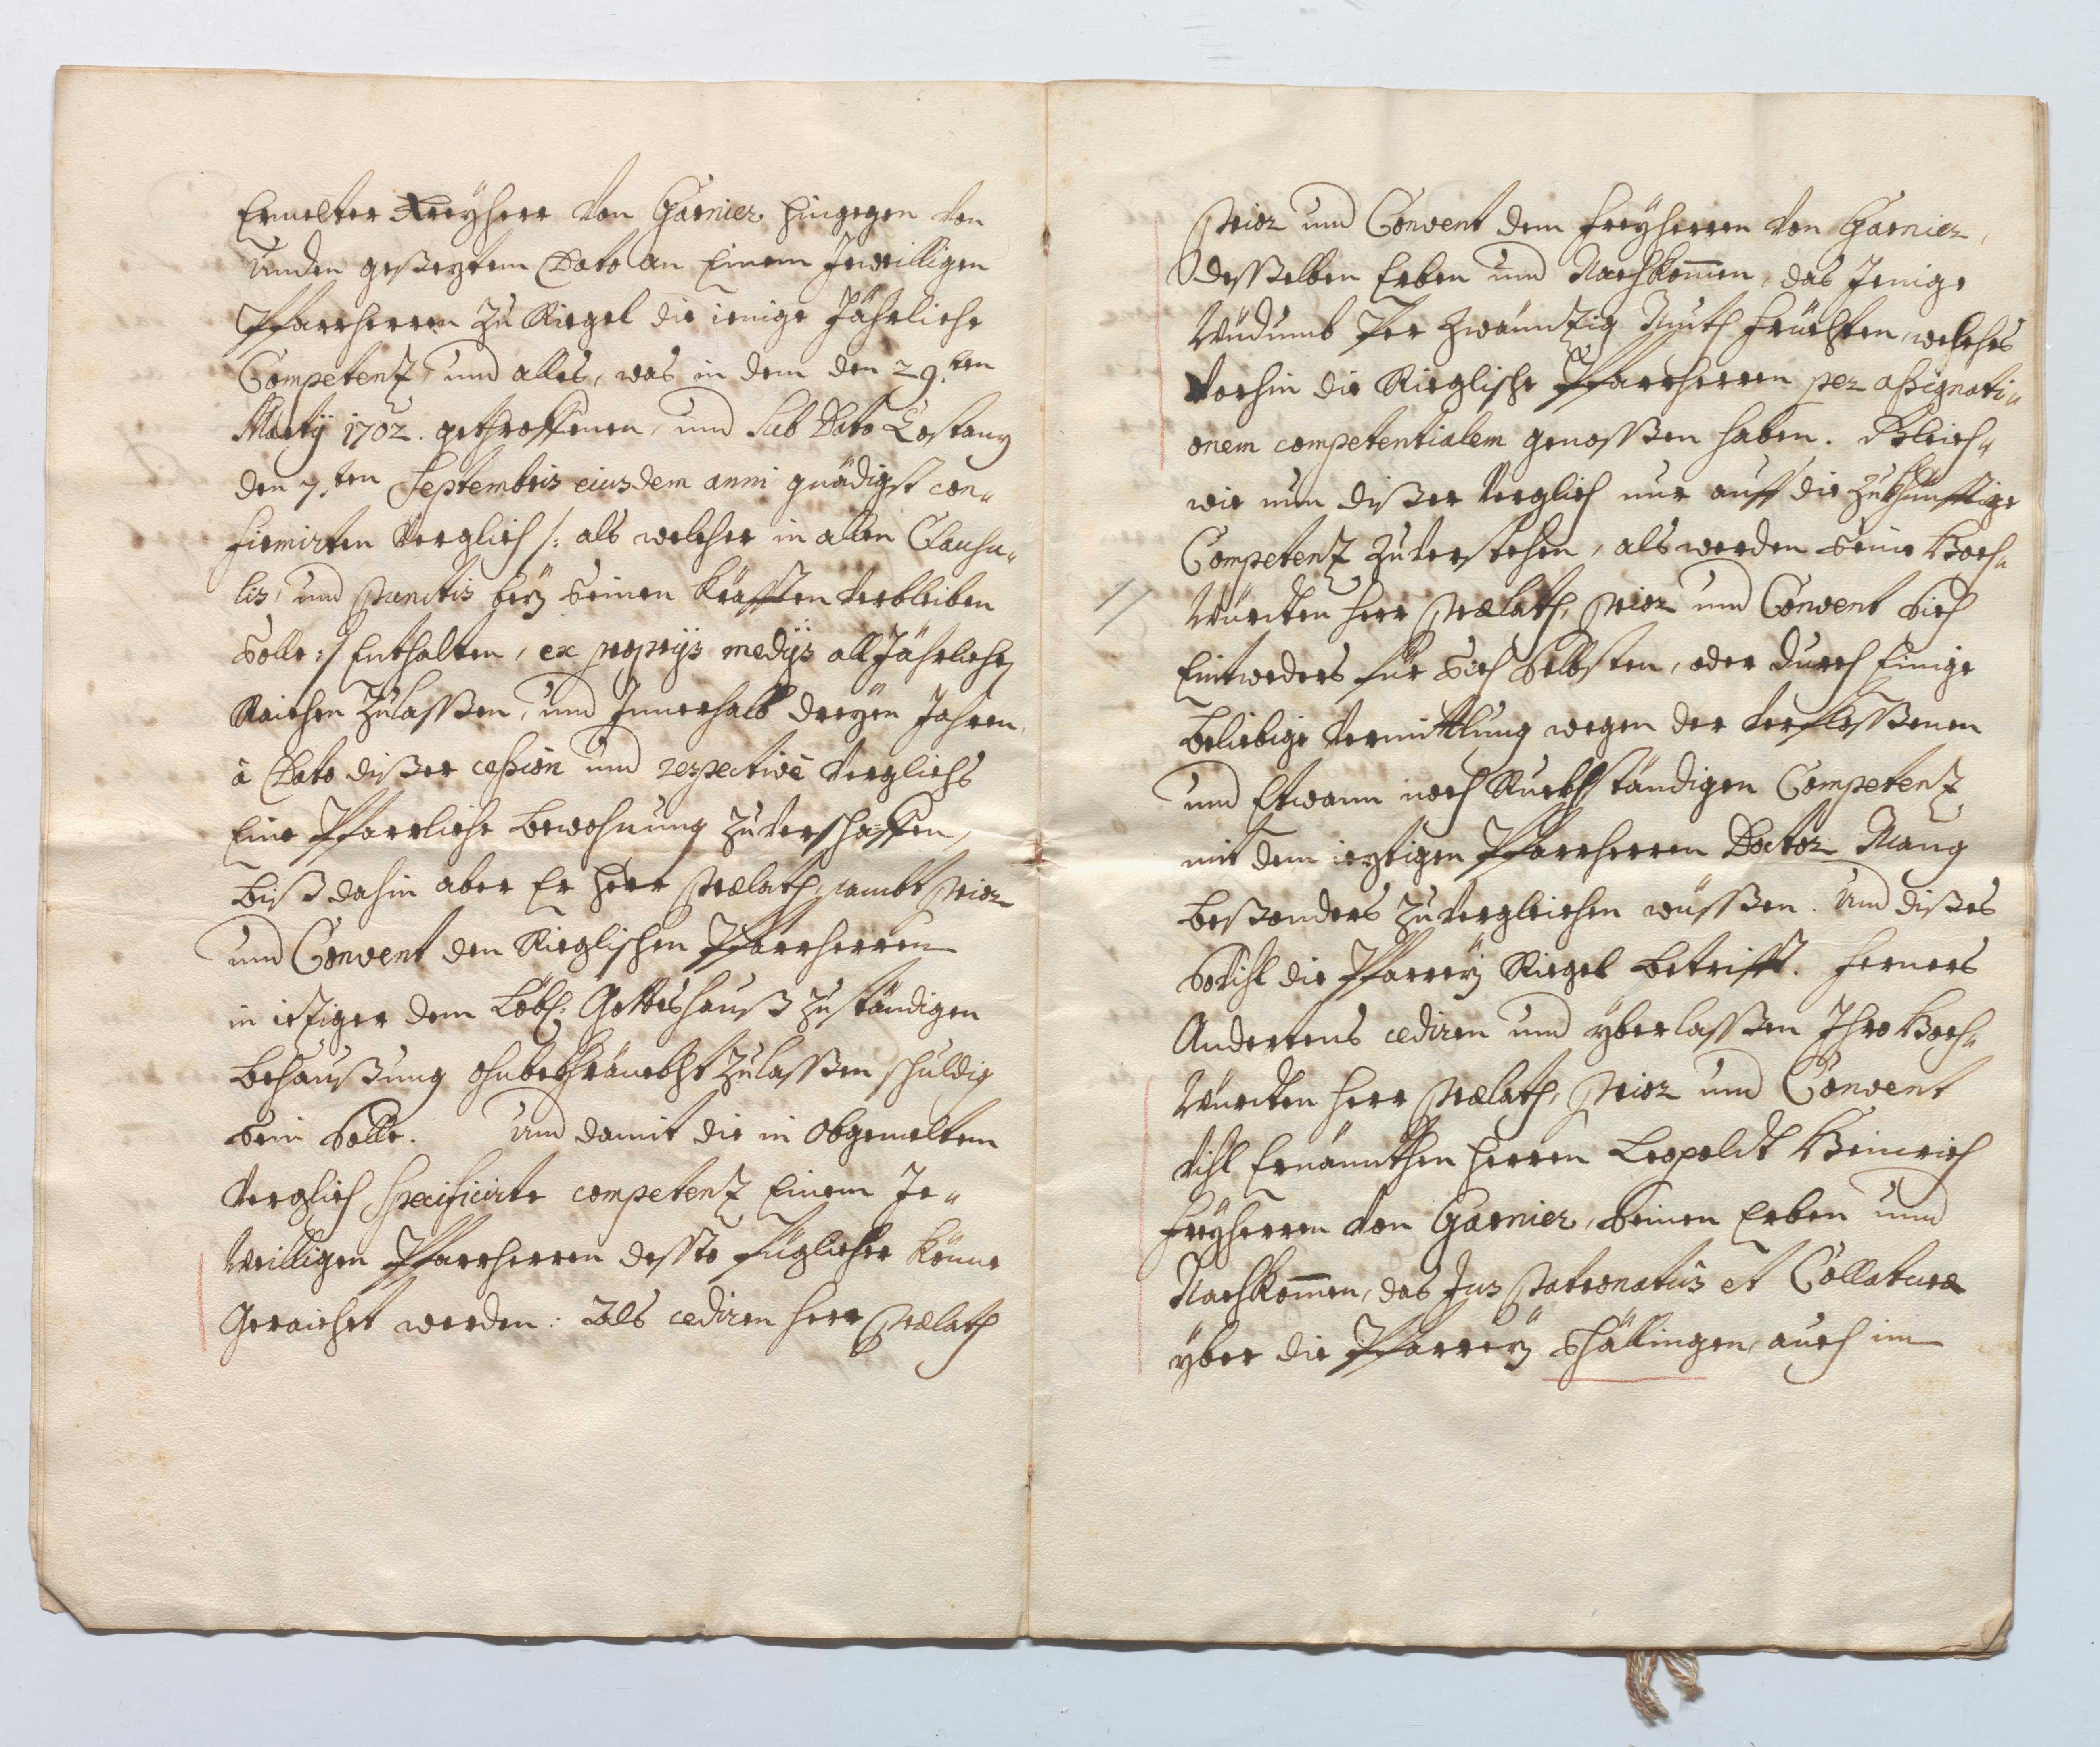 Ermelter Freyherr von Garnier hingegen von
Unden geseztem Dato an Einem Jeweilligen
Pfarrherren zu Riegel die ienige Jährliche
Competenz, und alles, was in dem den 29.ten
Martij 1702. getroffenen, und sub Dato Costanz
den 7.ten Septembris eiusdem anni gnädigst con„
firmirten Verglich /: als welcher in allen Clausu„
lis, und punctis bey seinen Kräfften verbleiben
solle :/ Enthalten, ex proprijs medijs all Jährlichen
Raichen zulaßen, und Innerhalb dreyen Jahren,
à Dato dißer cession und respective Verglichs
Eine Pfarrliche bewohnung zuverschaffen,
biß dahin aber Er Herr Prælath, sambt Prior
und Convent den Rieglischen Pfarrherren
in ietziger dem Löbl: Gottshauß zuständigen
behaußung ohnbekhränckht zulaßen schuldig
sein solle. Und damit die in obgemeltem
Verglich specificirte competenz Einem Je„
weilligen Pfarrherren desto füglicher könne
Geraichet werden: Als cediren Herr Prælath
Prior und Convent dem Freyherren von Garnier,
desselben Erben und Nachkom̄en, das Jenige
Wüdumb Per zwäuntzig Muth Früchten, welches
vorhin die Rieglische Pfarrherren per assignati„
onem competentialem genoßen haben. Gleich„
wie nun dißer Verglich nur auff die zukhünfftige
Competenz zuverstehen, als werden seine Hoch„
Würden Herr Prælath, Prior und Convent sich
Eintweders für sich selbsten, oder durch Einige
beliebige Vermittlung wegen der verfloßenen
und Etwann noch Ruckhständigen Competenz
mit dem ieztigen Pfarrherren Doctor Maug
besonders zuvergleichen wüßen. Und dißes
sovihl die Pfarrey Riegel betrifft. Ferners
Andertens cediren und yberlaßen Ihro Hoch„
Würden Herr Prælath, Prior und Convent
vihl Ernannthen Herren Leopoldt Heinrich
Freyherren von Garnier, seinen Erben und
Nachkom̄en, das Jus Patronatus et Collaturæ
yber die Pfarrey Schällingen, auch im